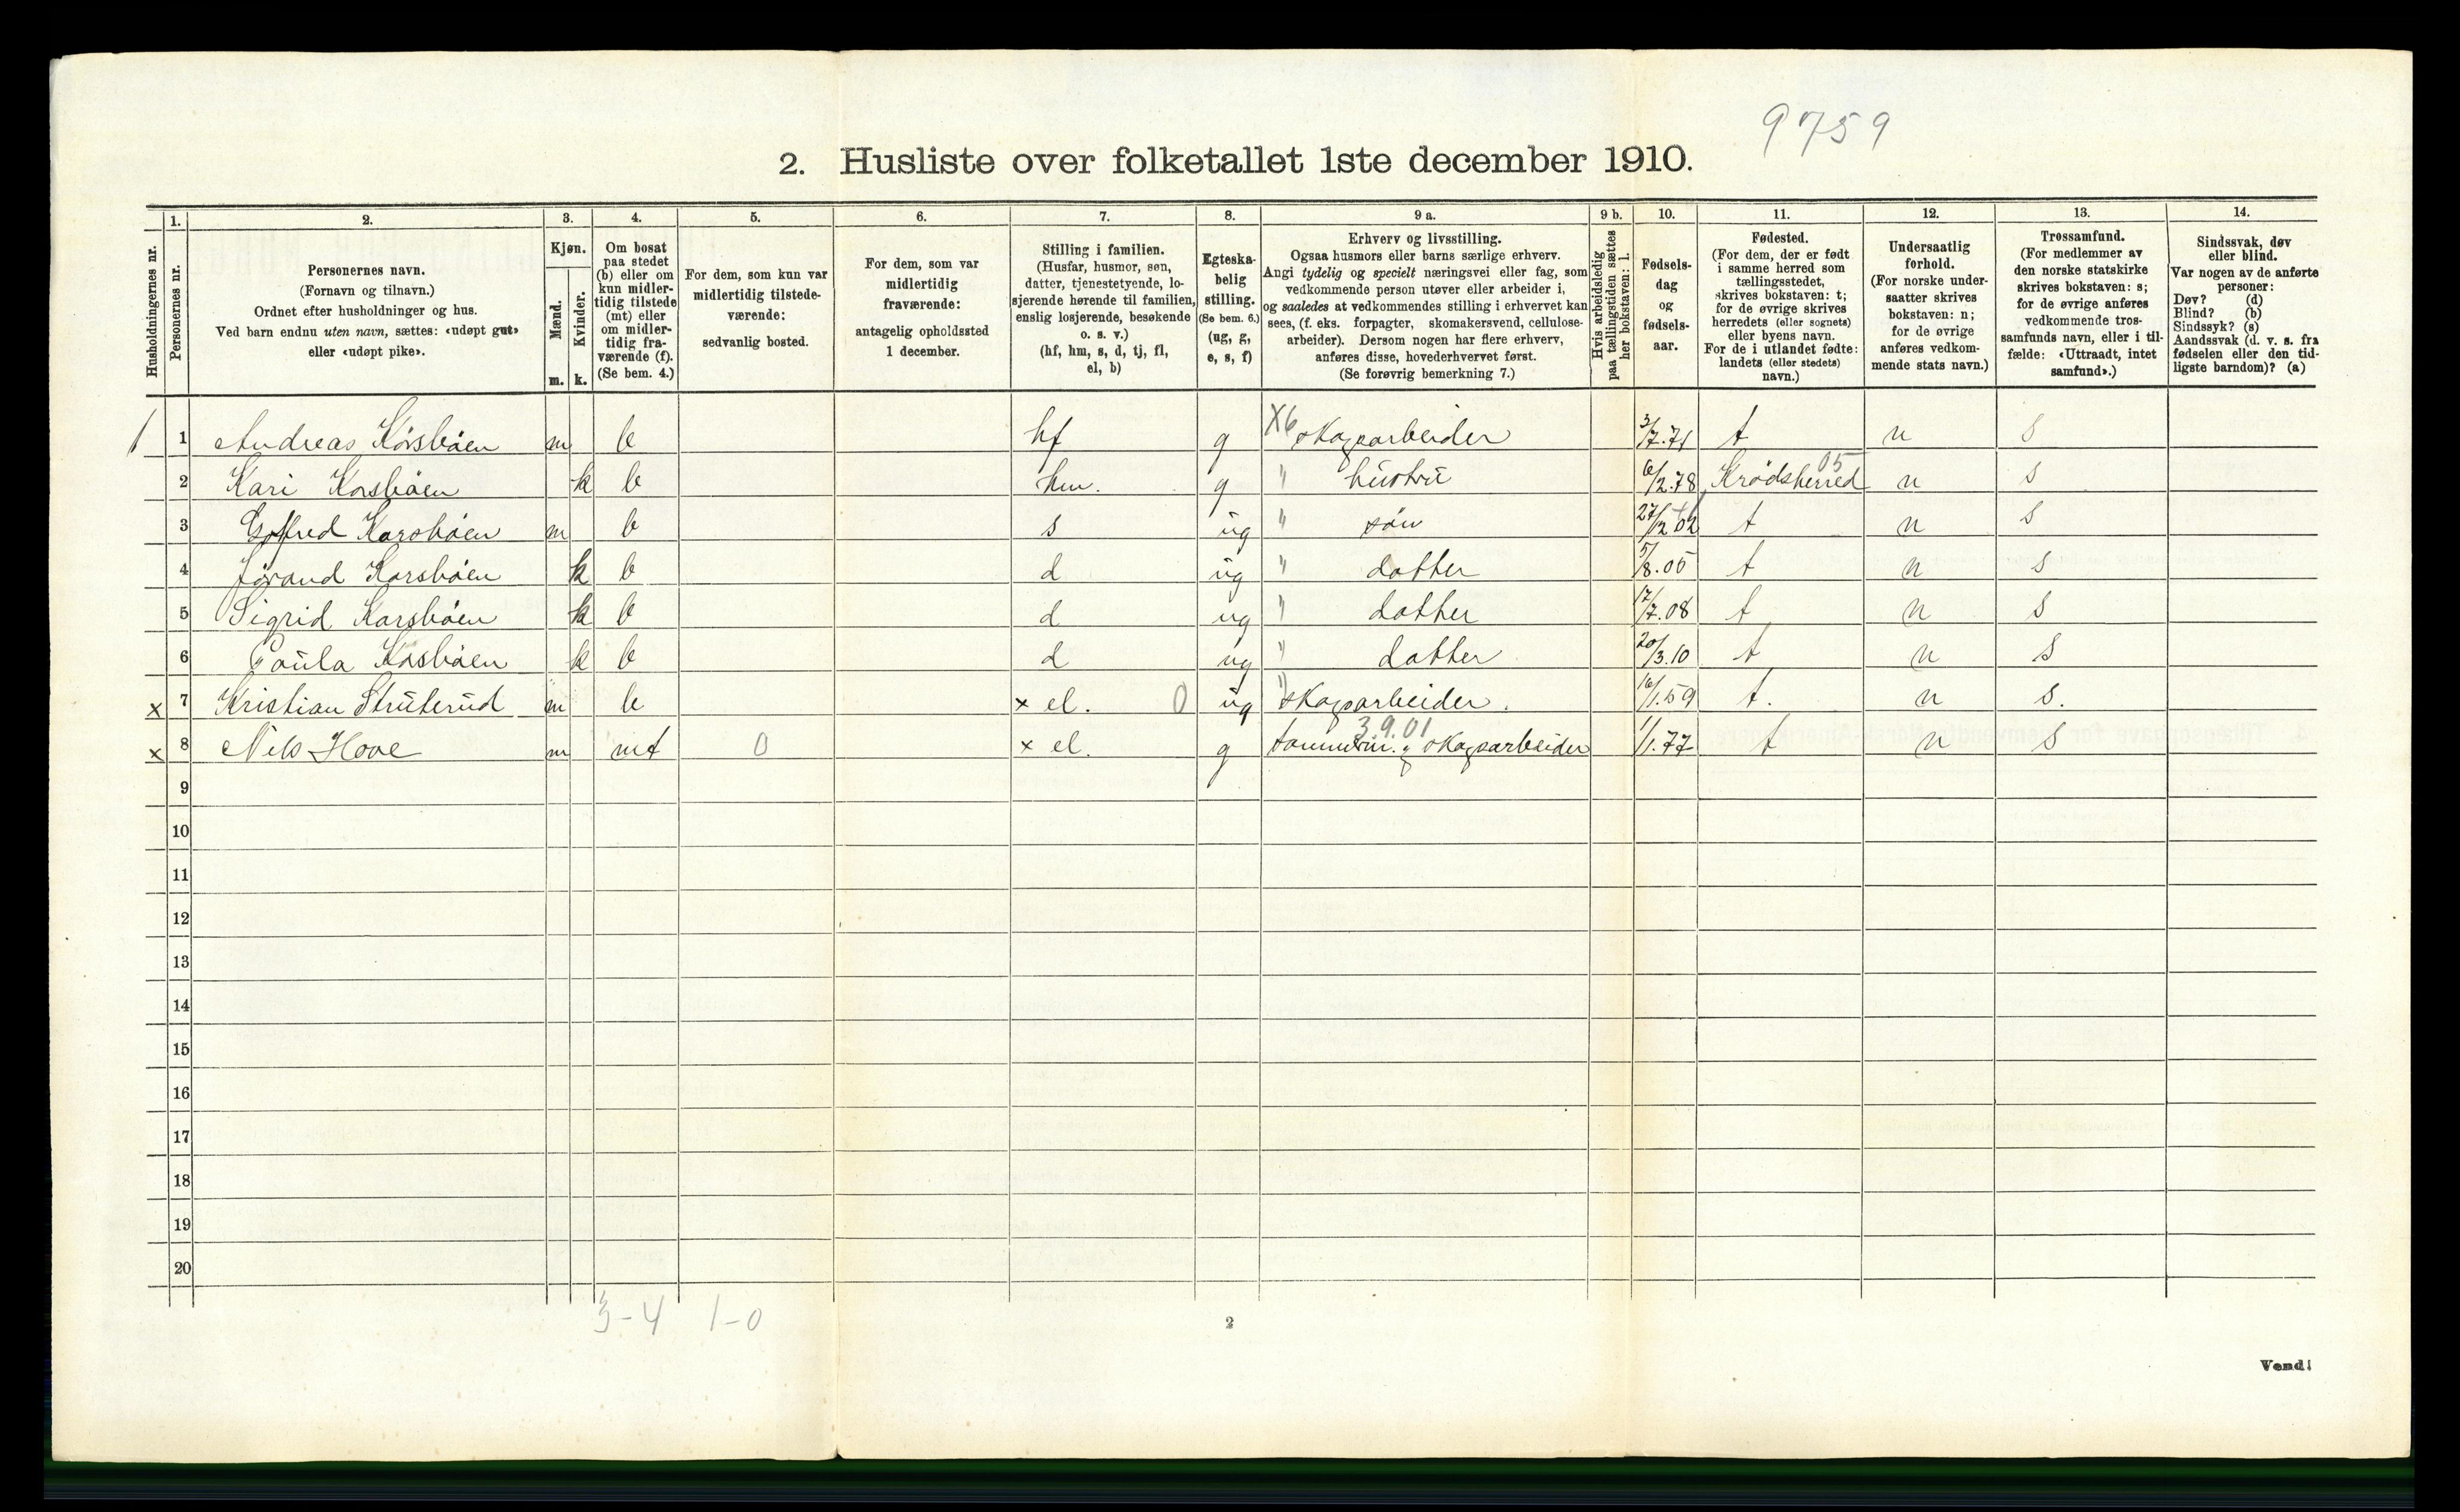 9759
2. Husliste over folketallet 1ste december 1910.
1. 2. 3. 4. 5. 6. 7. 8. 9 a. 9 b. 10. 11. 12. 13. 14.
Husholdningernes nr.
Personernes nr.
Personernes navn.
(Fornavn og tilnavn.)
Ordnet efter husholdninger og hus.
Ved barn endnu uten navn, sættes: «udøpt gut»
eller «udøpt pike».
Kjøn.
Mænd.
Kvinder.
m. k.
Om bosat
paa stedet
(b) eller om
kun midler-
tidig tilstede
(mt) eller
om midler-
tidig fra-
værende (f).
(Se bem. 4.)
For dem, som kun var
midlertidig tilstede-
værende:
sedvanlig bosted.
For dem, som var
midlertidig
fraværende:
antagelig opholdssted
1 december.
Stilling i familien.
(Husfar, husmor, søn,
datter, tjenestetyende, lo-
sjerende hørende til familien,
enslig losjerende, besøkende
o. s. v.)
(hf, hm, s, d, tj, fl,
el, b)
Egteska-
belig
stilling.
(Se bem. 6.)
(ug, g,
e, s, f)
Erhverv og livsstilling.
Ogsaa husmors eller barns særlige erhverv.
Angi tydelig og specielt næringsvei eller fag, som
vedkommende person utøver eller arbeider i,
og saaledes at vedkommendes stilling i erhvervet kan
sees, (f. eks. forpagter, skomakersvend, cellulose-
arbeider). Dersom nogen har flere erhverv,
anføres disse, hovederhvervet først.
(Se forøvrig bemerkning 7.)
Hvis arbeidsledig
paa tællingstiden sættes
her bokstaven: l.
Fødsels-
dag
og
fødsels-
aar.
Fødested.
(For dem, der er født
i samme herred som
tællingsstedet,
skrives bokstaven: t;
for de øvrige skrives
herredets (eller sognets)
eller byens navn.
For de i utlandet fødte:
landets (eller stedets)
navn.)
Undersaatlig
forhold.
(For norske under-
saatter skrives
bokstaven: n;
for de øvrige
anføres vedkom-
mende stats navn.)
Trossamfund.
(For medlemmer av
den norske statskirke
skrives bokstaven: s;
for de øvrige anføres
vedkommende tros-
samfunds navn, eller i til-
fælde: «Uttraadt, intet
samfund».)
Sindssvak, døv
eller blind.
Var nogen av de anførte
personer:
Døv? (d)
Blind? (b)
Sindssyk? (s)
Aandssvak (d. v. s. fra
fødselen eller den tid-
ligste barndom)? (a)
1 1 Andreas Korsbøen m b hf g X6 skogsarbeider 3/7.71 t n s
2 Kari Korsbøen k b hm. g " hustru 6/2.78 Krødsherred 05 n s
3 Korsbøen m b s ug " søn 27/2 02 t n s
4 Jørand Korsbøen k b d ug " datter 5/8.05 t n s
5 Sigrid Korsbøen k b d ug " datter 17/7.08 t n s
6 Paula Korsbøen k b d ug " datter 20/3.10 t n s
x 7 Kristian Struterud m b x el. 0 ug " skogsarbeider. 16/1.59 t. n s.
x 8 Nels Hove m mt 0 x el. g 3.9.01 tømmerm. og skogsarbeider 1/1.77 t n s
9
10
11
12
13
14
15
16
17
18
19
20
3-4 1-0
2
Vend!